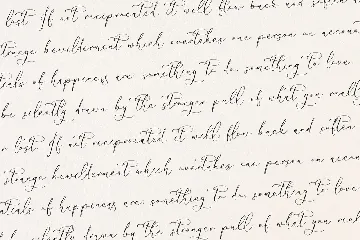 lost. If not reciprocated, it will flow back and soften
strange bewilderment which overtakes one person on account
tials of happiness are something to do, something to love
be silently drawn by the stronger pull of what you really
lost. If not reciprocated, it will flow back and soften
strange bewilderment which overtakes one person on account
ntials of happiness are something to do, something to love
silently drawn by the stronger pull of what you really